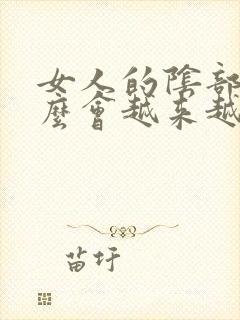 女人的陰部
麼會越来越
苗圩